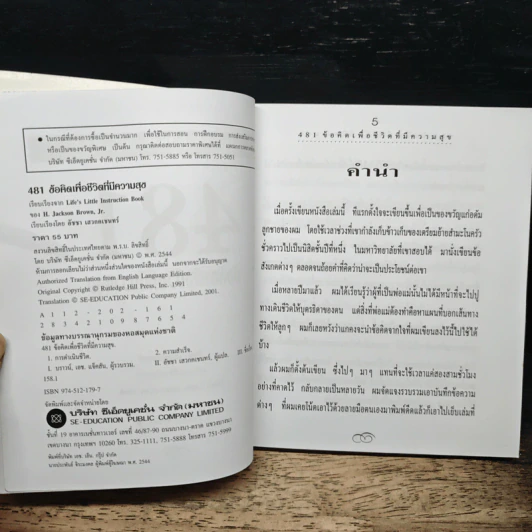 ● ในกรณีที่ต้องการซื้อเป็นจำนวนมาก เพื่อใช้ในการสอน การฝึกอบรม การส่งเสริม
หรือเป็นของขวัญพิเศษ เป็นต้น กรุณาติดต่อสอบถามราคาพิเศษได้ที่
บริษัท ซีเอ็ดยูเคชั่น จำกัด (มหาชน) โทร. 751-5885 หรือ โทรสาร 751-5051
481 ข้อคิดเพื่อชีวิตที่มีความสุข
เรียบเรียงจาก Life's Little Instruction Book
ของ H. Jackson Brown, Jr.
เรียบเรียงโดย อัชชา เสวกคเชนทร์
ราคา 55 บาท
สงวนลิขสิทธิ์ในประเทศไทยตาม พ.ร.บ. ลิขสิทธิ์
โดย บริษัท ซีเอ็ดยูเคชั่น จำกัด (มหาชน) © พ.ศ. 2544
ห้ามการลอกเลียนไม่ว่าส่วนหนึ่งส่วนใดของหนังสือเล่มนี้ นอกจากจะได้รับอนุญาต
Authorized Translation from English Language Edition.
Original Copyright © Rutledge Hill Press, Inc. 1991
Translation © SE-EDUCATION Public Company Limited, 2001.
A 1 1 2 - 2 0 2 - 1 6 1
2 8 3 4 2 1 0 9 8 7 6 5
ข้อมูลทางบรรณานุกรมของหอสมุดแห่งชาติ
481 ข้อคิดเพื่อชีวิตที่มีความสุข.
1. การดำเนินชีวิต. 2. ความสำเร็จ.
I. บราวน์, เอช. แจ็คสัน, ผู้รวบรวม. II. อัชชา เสวกคเชนทร์, ผู้แปล.
158.1
ISBN 974-512-179-7
จัดพิมพ์และจัดจำหน่ายโดย
บริษัท ซีเอ็ดยูเคชั่น จำกัด (มหาชน)
SE-EDUCATION PUBLIC COMPANY LIMITED
ชั้นที่ 19 อาคารเนชั่นทาวเวอร์ เลขที่ 46/87-90 ถนนบางนา-ตราด แขวงบางนา
เขตบางนา กรุงเทพฯ 10260 โทร. 325-1111, 751-5888 โทรสาร 751-5989
5
481 ข้อคิดเพื่อชีวิตที่มีความสุข
คำนำ
เมื่อครั้งเขียนหนังสือเล่มนี้ ทีแรกตั้งใจจะเขียนขึ้นเพื่อเป็นของขวัญแก่อดัม
ลูกชายของผม โดยใช้เวลาช่วงที่เขากำลังเก็บข้าวเก็บของเตรียมย้ายสำมะโนครัว
ชั่วคราวไปเป็นนิสิตชั้นปีที่หนึ่ง ในมหาวิทยาลัยที่เขาสอบได้ มานั่งเขียนข้อ
สังเกตต่างๆ ตลอดจนถ้อยคำที่คิดว่าน่าจะเป็นประโยชน์ต่อเขา
เมื่อหลายปีมาแล้ว ผมได้เรียนรู้ว่าผู้ที่เป็นพ่อแม่นั้นไม่ได้มีหน้าที่จะไปปู
ทางเดินชีวิตให้บุตรธิดาของตน แต่สิ่งที่พ่อแม่ต้องทำคือหาแผนที่บอกเส้นทาง
ชีวิตให้ลูกๆ ผมก็เลยหวังว่าแกคงจะนำข้อคิดจากใจที่ผมเขียนลงไว้นี้ไปใช้ได้
บ้าง
แล้วผมก็ตั้งต้นเขียน ซึ่งไปๆ มาๆ แทนที่จะใช้เวลาแค่สองสามชั่วโมง
อย่างที่คาดไว้ กลับกลายเป็นหลายวัน ผมจัดแจงรวบรวมเอาบันทึกข้อความ
ต่างๆ ที่ผมเคยโน้ตเอาไว้ด้วยลายมือตนเองมาพิมพ์ดีดแล้วก็เอาไปเย็บเล่มที่